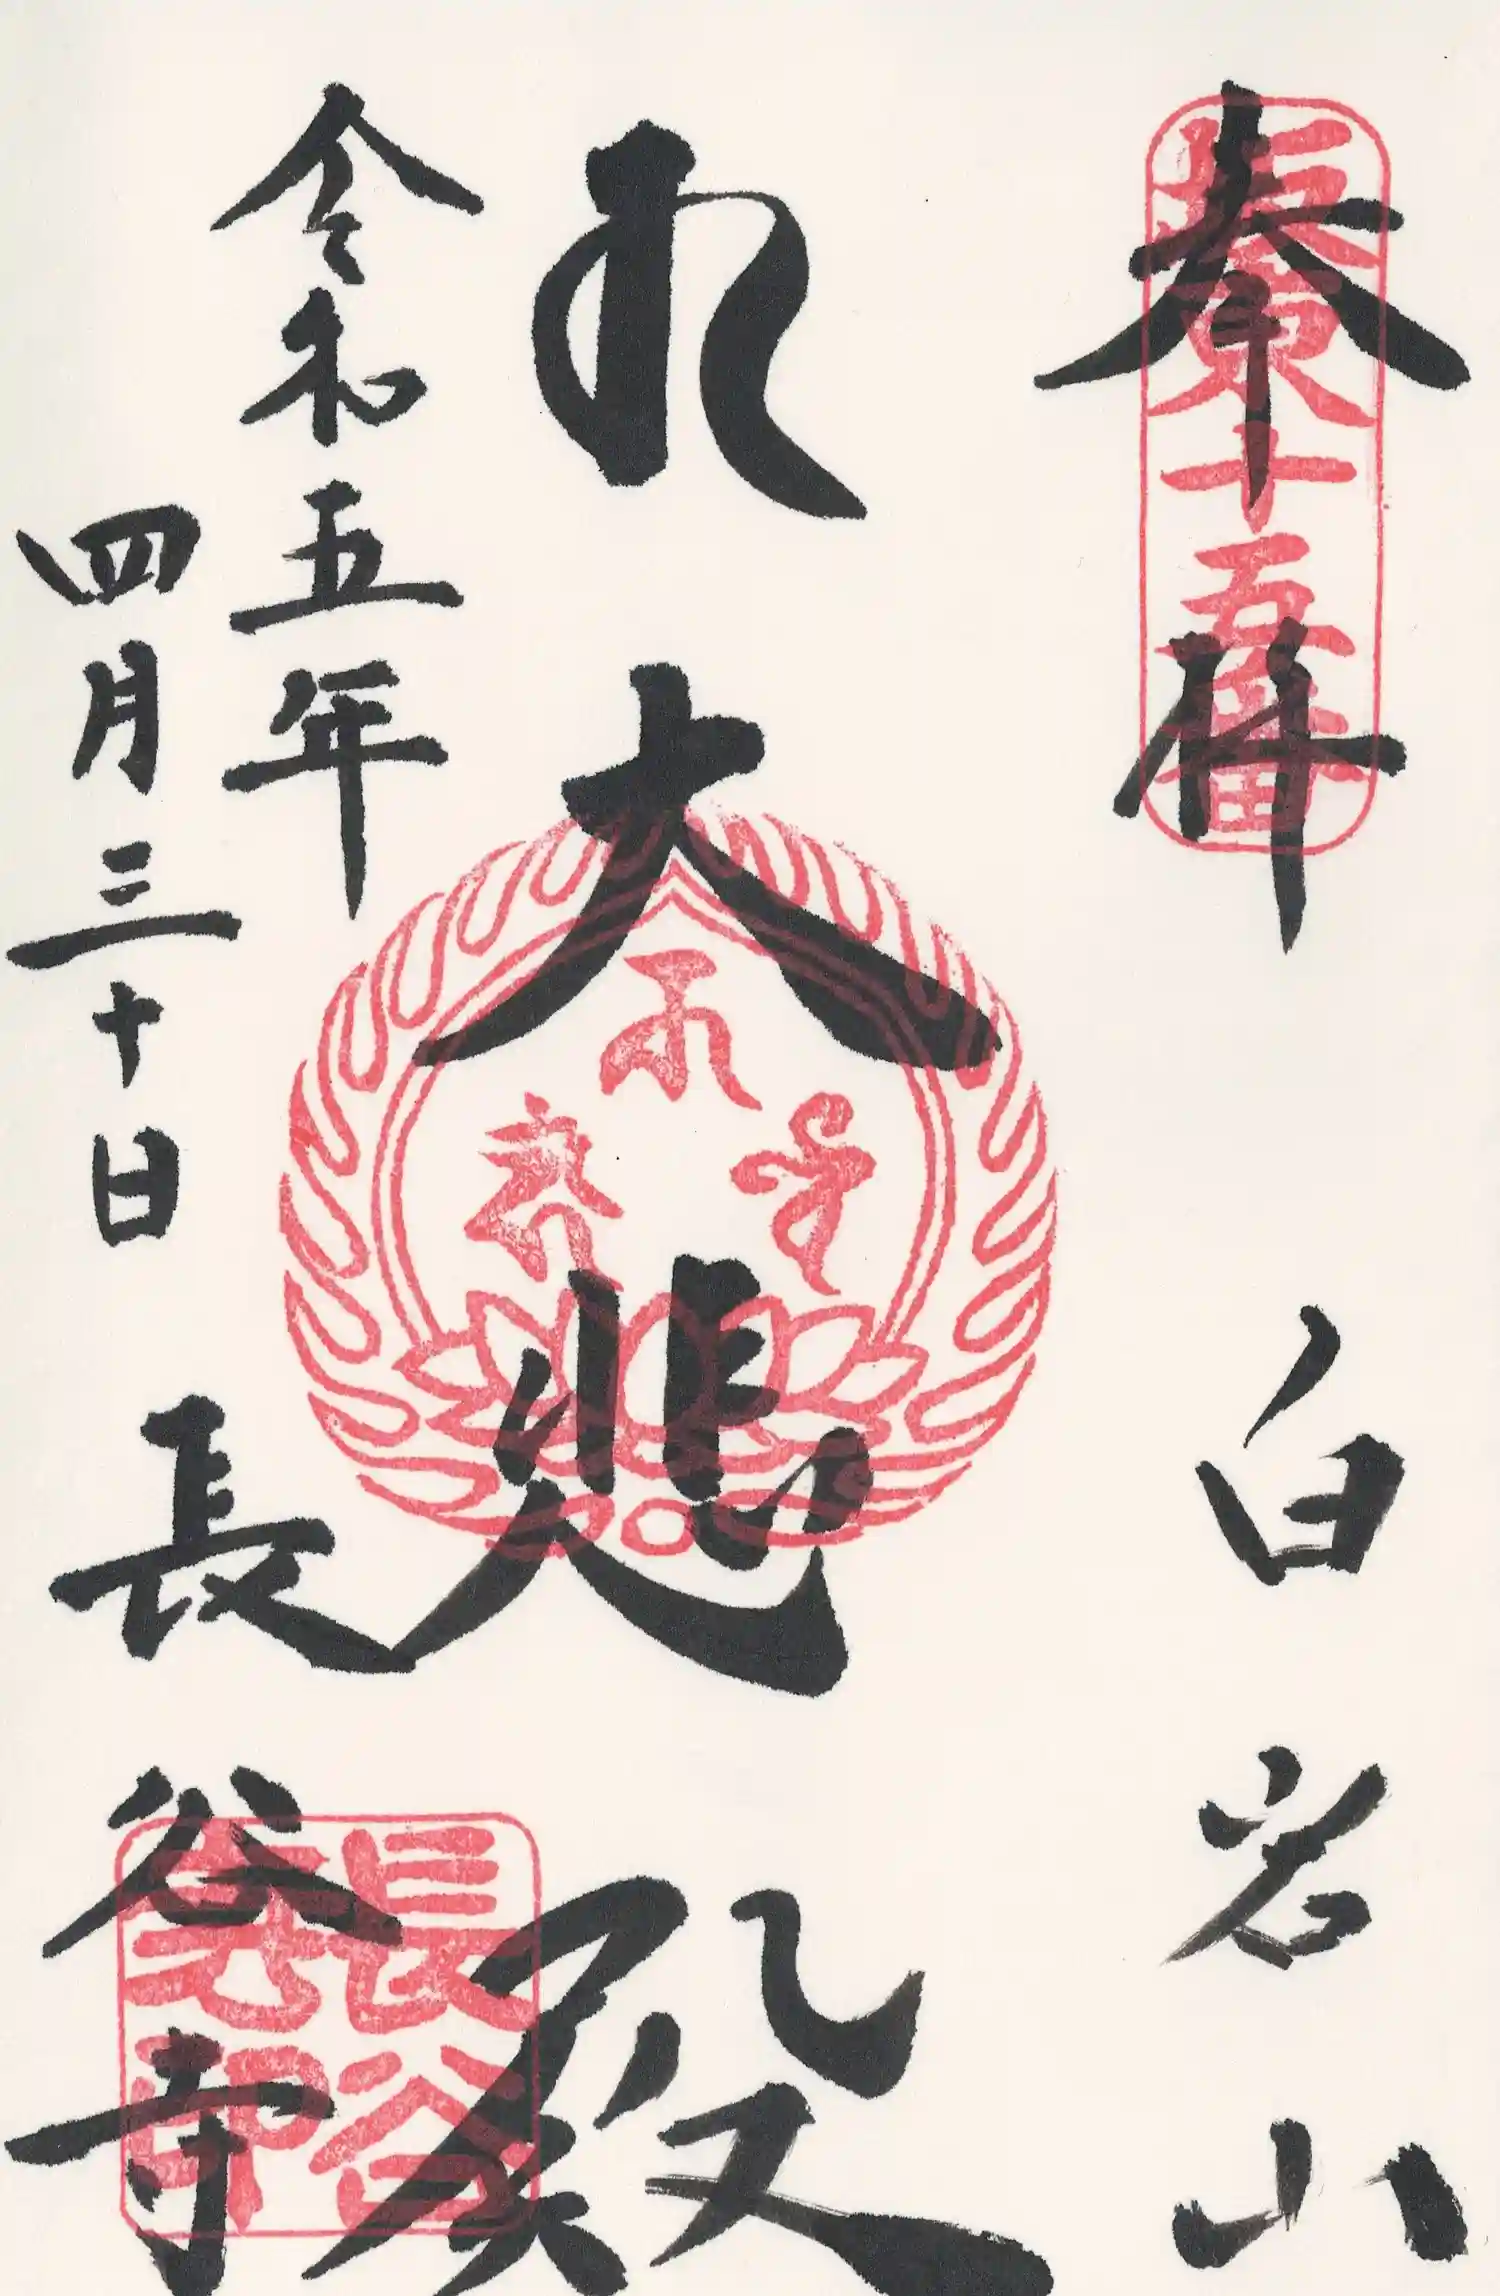 坂東十五番
奉拝 白岩山
大悲殿
令和五年
四月三十日
長谷寺